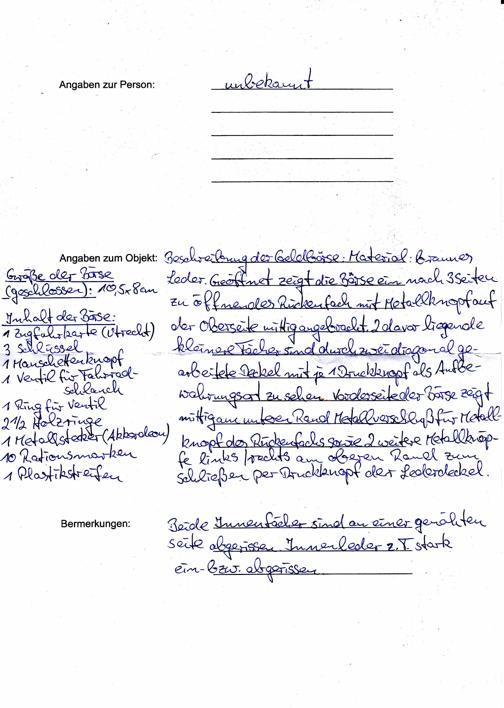 Angaben zur Person: unbekannt
Angaben zum Objekt: Beschreibung der Geldbörse: Material: Braunes
Leder. Geöffnet zeigt die Börse ein nach 3 Seiten
zu öffnendes Rückenfach mit Metallknopf auf
der Oberseite mittig angebracht. 2 davor liegende
kleinere Fächer sind durch zwei diagonal ge-
arbeitete Deckel mit je 1 Druckknopf als Aufbe-
wahrungsort zu sehen. Vorderseite der Börse zeigt
mittig am unteren Rand Metallverschluß für Metall-
knopf des Rückenfachs sowie 2 weitere Metallknöp-
fe links/rechts am oberen Rand zum
schließen per Druckknopf der Lederdeckel.
Größe der Börse
(geschlossen): 10,5x8cm
Inhalt der Börse:
1 Zugfahrkarte (Utrecht)
3 Schlüssel
1 Manschettenknopf
1 Ventil für Fahrrad-
schlauch
1 Ring für Ventil
2 1/2 Holzringe
1 Metallstecker (Akkordeon)
10 Rationsmarken
1 Plastikstreifen
Bermerkungen: Beide Innenfächer sind an einer genähten
Seite abgerissen. Innenleder z.T. stark
ein- bzw. abgerissen